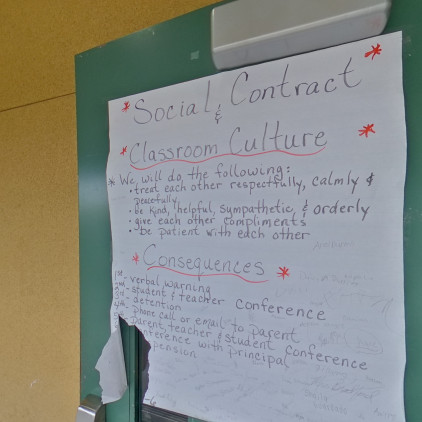 Social & Contract
Classroom Culture
We will do, the following:
• treat each other respectfully, calmly &
peacefully,
• be kind, helpful, sympathetic, & orderly
• give each other compliments
• be patient with each other
Consequences
1st - verbal warning
2nd - student & teacher conference
3rd - detention
4th - phone call or email to parent
parent, teacher & student conference
conference with principal
pension